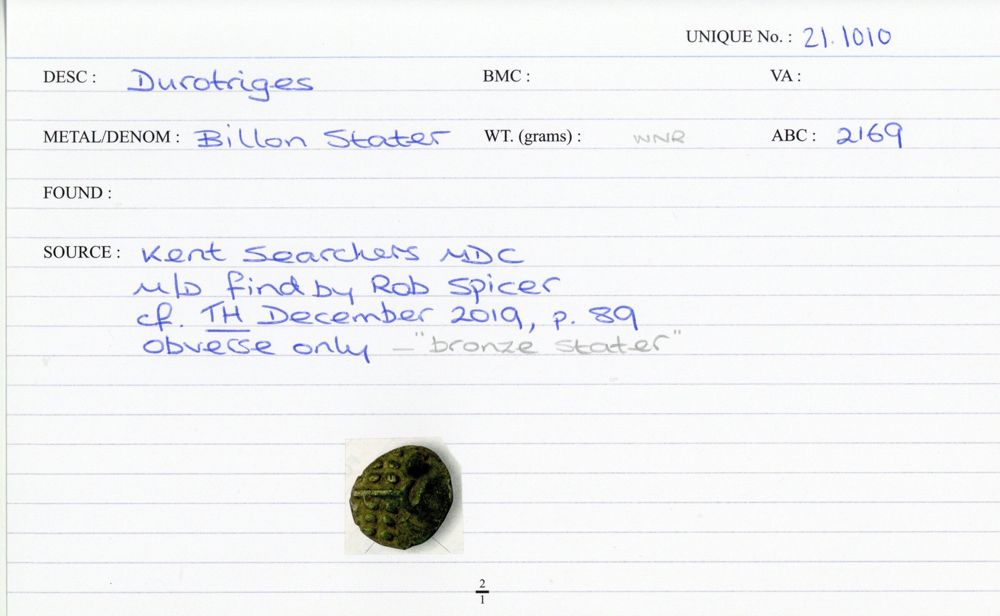 UNIQUE No. : 21.1010
DESC : Durotriges BMC : VA :
METAL/DENOM : Billon Stater WT. (grams) : WNR ABC : 2169
FOUND :
SOURCE : Kent Searchers MDC
M/D find by Rob Spicer
cf. TH December 2019, p. 89
obverse only – "bronze stater"
2
1